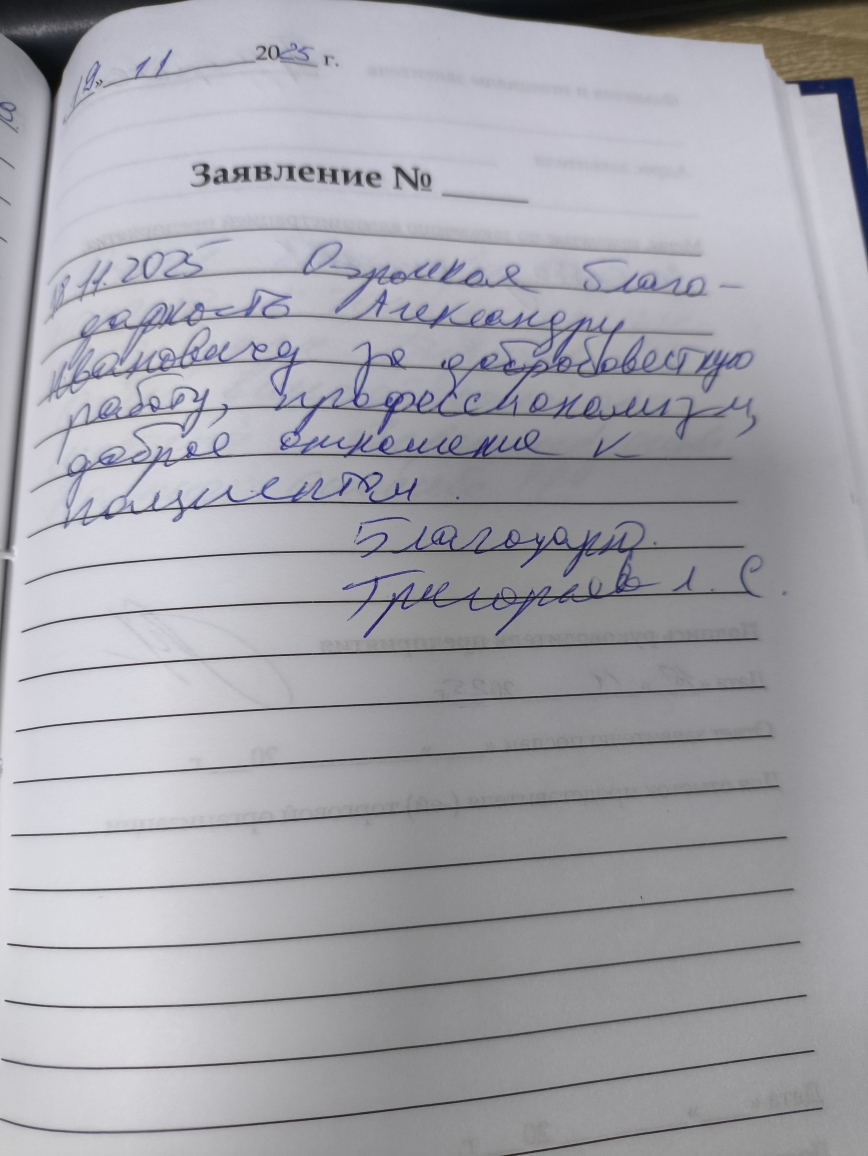 19» 11 2025 г.
Заявление №
18.11.2025 Огромная благо-
дарность Александру
Ивановичу за добробовестную
работу, профессионализм,
доброе отношение к
пациентам.
Благодарю.
Григорьева Л. С.